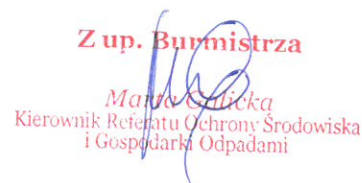 Z up. Burmistrza
Marta Galicka
Kierownik Referatu Ochrony Środowiska
i Gospodarki Odpadami